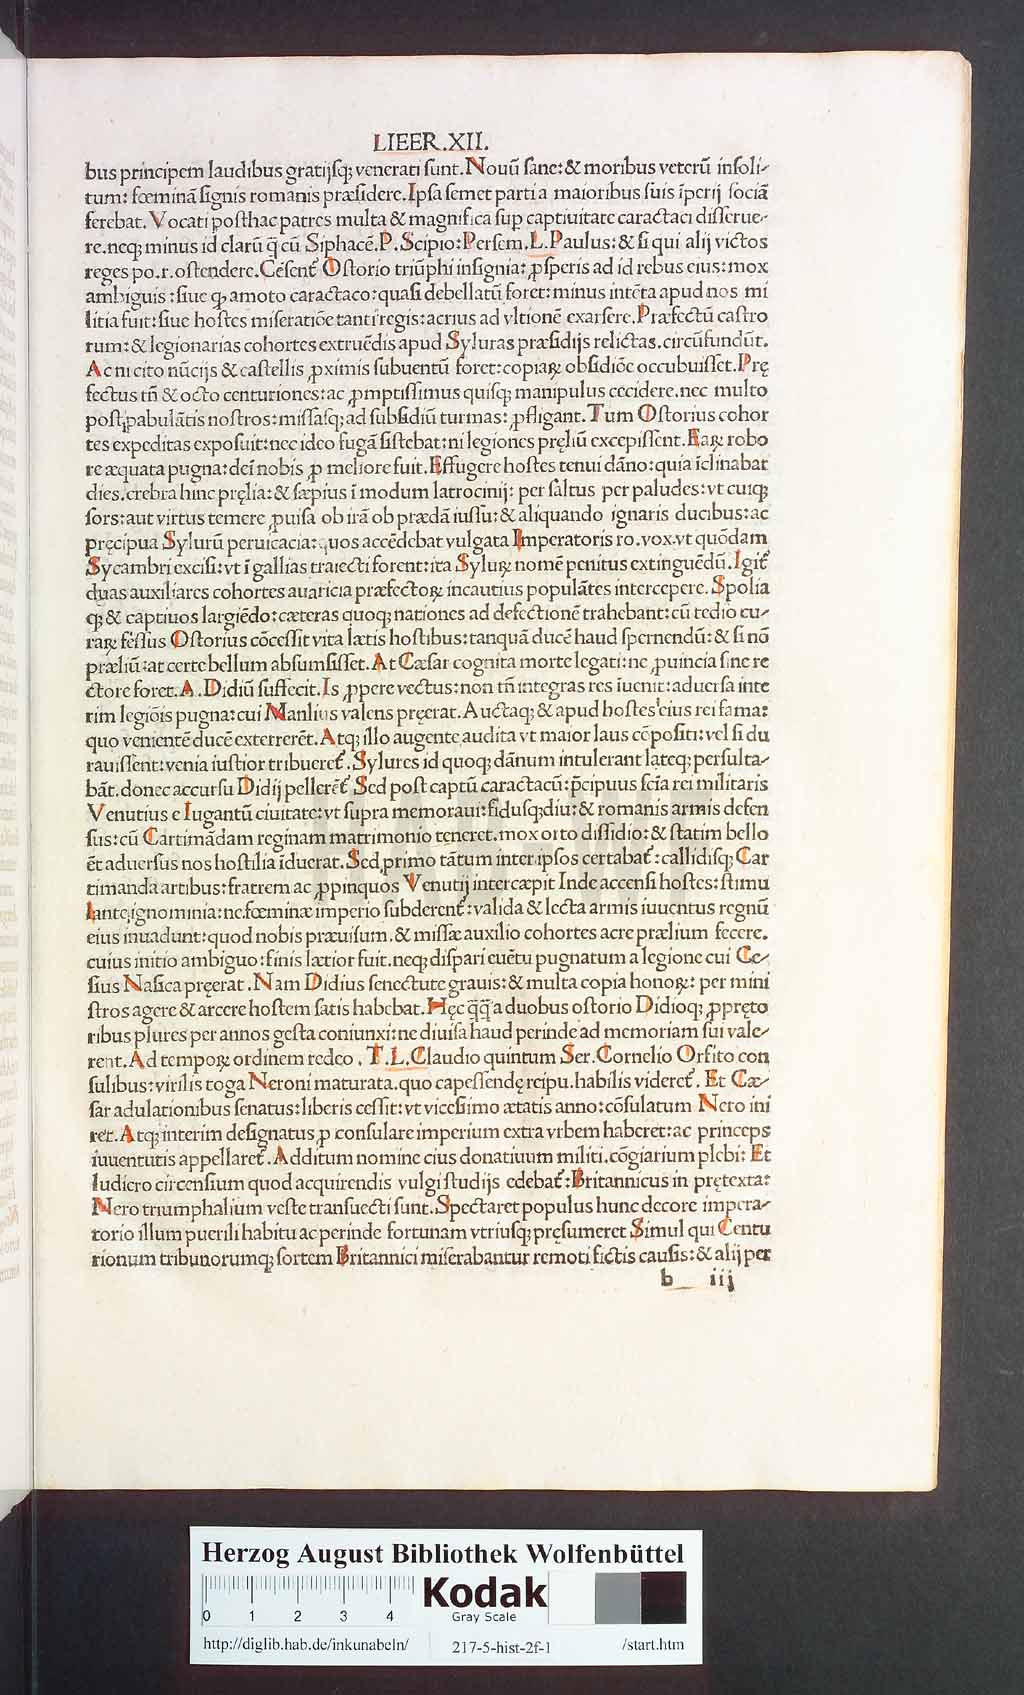 LIEER.XII.
bus principem laudibus gratijsq; venerati sunt. Nouū sane: & moribus veterū insoli-
tum: fœminā signis romanis præsidere. Ipsa semet parti a maioribus suis īperij sociā
ferebat. Vocati posthac patres multa & magnifica sup captiuitate caractaci disserue-
re. neq; minus id clarū q̄ cū Siphacē. P. Scipio: Persem. L. Paulus: & si qui alij victos
reges po. r. ostendere. Cēsent᷑ Ostorio triūphi insignia: ꝓsperis ad id rebus eius: mox
ambiguis: siue ꝙ amoto caractaco: quasi debellatū foret: minus intēta apud nos mi
litia fuit: siue hostes miseratiōe tanti regis: acrius ad vltionē exarsere. Præfectū castro
rum: & legionarias cohortes extruēdis apud Syluras præsidijs relictas. circūfundūt.
Ac ni cito nūcijs & castellis ꝓximis subuentū foret: copiaꝝ obsidiōe occubuisset. Prę
fectus tn̄ & octo centuriones: ac ꝓmptissimus quisq; manipulus cecidere. nec multo
post pabulātis nostros: missasq; ad subsidiū turmas: ꝓfligant. Tum Ostorius cohor
tes expeditas exposuit: nec ideo fugā sistebat: ni legiones pręliū excepissent. Eaꝝ robo
re æquata pugna: deī nobis ꝓ meliore fuit. Effugere hostes tenui dāno: quia īclinabat
dies. crebra hinc pręlia: & sæpius ī modum latrocinij: per saltus per paludes: vt cuiq;
sors: aut virtus temere ꝓuisa ob irā ob prædā iussu: & aliquando ignaris ducibus: ac
pręcipua Sylurū peruicacia: quos accēdebat vulgata Imperatoris ro. vox. vt quōdam
Sycambri excisi: vt ī gallias traiecti forent: ita Syluꝝ nomē penitus extinguēdū. Igit᷑
duas auxiliares cohortes auaricia præfectoꝝ incautius populātes intercepere. Spolia
q; & captiuos largiēdo: cæteras quoq; nationes ad defectionē trahebant: cū tedio cu-
raꝝ fessus Ostorius cōcessit vita lætis hostibus: tanquā ducē haud spernendū: & si nō
præliū: at certe bellum absumsisset. At Cæsar cognita morte legati: ne ꝓuincia sine re
ctore foret. A. Didiū suffecit. Is ꝓpere vectus: non tn̄ integras res īuenit: aduersa inte
rim legiōis pugna: cui Manlius valens pręerat. Auctaq; & apud hostes eius rei fama:
quo venientē ducē exterrerēt. Atq; illo augente audita vt maior laus cōpositi: vel si du
rauissent: venia iustior tribueret᷑. Sylures id quoq; dānum intulerant lateq; persulta-
bāt. donec accursu Didij pellerēt᷑ Sed post captū caractacū: p̄cipuus scīa rei militaris
Venutius e Iugantū ciuitate: vt supra memoraui: fidusq; diu: & romanis armis defen
sus: cū Cartimādam reginam matrimonio teneret. mox orto dissidio: & statim bello
ēt aduersus nos hostilia īduerat. Sed primo tātum inter ipsos certabat᷑: callidisq; Car
timanda artibus: fratrem ac ꝓpinquos Venutij intercæpit Inde accensi hostes: stimu
lante ignominia: ne fœminæ imperio subderent᷑: valida & lecta armis iuuentus regnū
eius inuadunt: quod nobis præuisum. & missæ auxilio cohortes acre prælium fecere.
cuius initio ambiguo: finis lætior fuit. neq; dispari euētu pugnatum a legione cui Ce-
sius Nasica pręerat. Nam Didius senectute grauis: & multa copia honoꝝ: per mini
stros agere & arcere hostem satis habebat. Hęc q̄q̄ a duobus ostorio Didioq; ꝓpręto
ribus plures per annos gesta coniunxi: ne diuisa haud perinde ad memoriam sui vale-
rent. Ad tempoꝝ ordinem redeo. T. L. Claudio quintum Ser. Cornelio Orfito con
sulibus: virilis toga Neroni maturata. quo capessendę reipu. habilis videret᷑. Et Cæ-
sar adulationibus senatus: liberis cessit: vt vicesimo ætatis anno: cōsulatum Nero ini
ret. Atq; interim designatus ꝓ consulare imperium extra vrbem haberet: ac princeps
iuuentutis appellaret᷑. Additum nomine eius donatiuum militi. cōgiarium plebi: Et
ludicro circensium quod acquirendis vulgi studijs edebat᷑: Britannicus in prętexta:
Nero triumphalium veste transuecti sunt. Spectaret populus hunc decore impera-
torio illum puerili habitu ac perinde fortunam vtriusq; pręsumeret Simul qui Centu
rionum tribunorumq; sortem Britannici miserabantur remoti fictis causis: & alij per
b iij
HAB-WF
Herzog August Bibliothek Wolfenbüttel
0 1 2 3 4
Kodak
Gray Scale
http://diglib.hab.de/inkunabeln/ 217-5-hist-2f-1 /start.htm